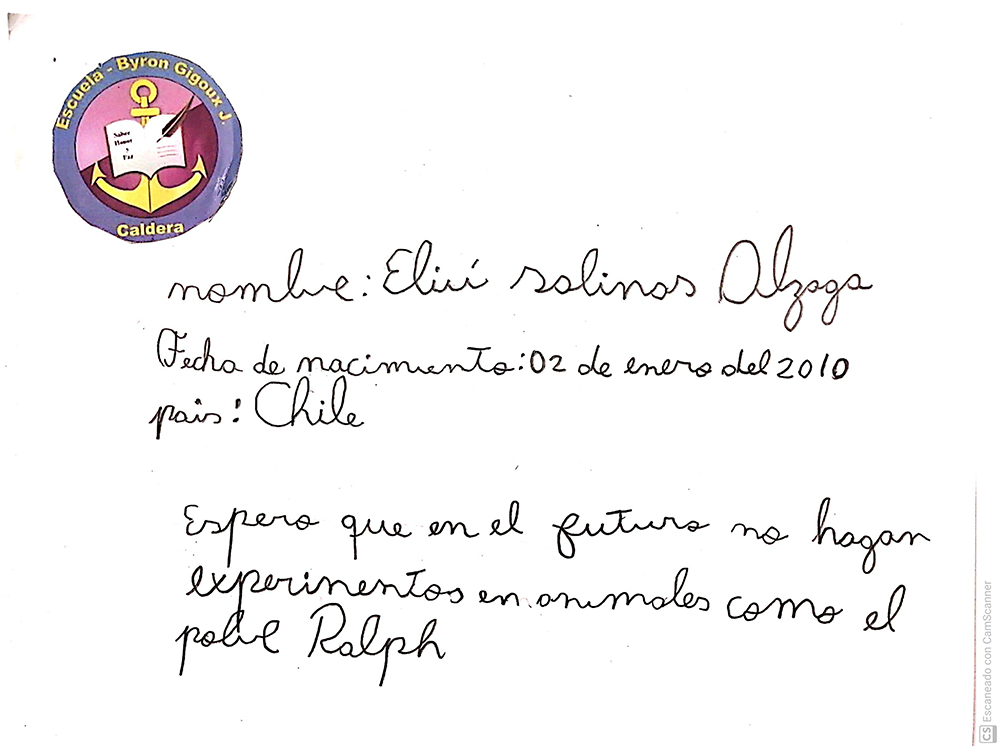 Escuela - Byron Gigoux J.
Saber
Honor
y
Paz
Caldera
nombre: Eliú salinas Alzaga
Fecha de nacimiento: 02 de enero del 2010
pais: Chile
Espero que en el futuro no hagan
experinentos en animales como el
pobre Ralph
CS Escaneado con CamScanner